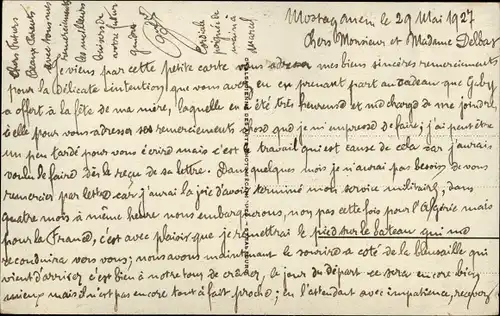 Mostaganem le 29 Mai 1927
Chers Monsieur et Madame Delbar
je viens par cette petite carte vous adresser mes bien sincères remerciements
pour la délicate intention que vous avez eu en prenant part au cadeau que Gaby
a offert à la fête de ma mère, laquelle en a été très heureuse et me charge de me joindre
à elle pour vous adresser ses remerciements, chose que je m'empresse de faire; j'ai peut être
un peu tardé pour vous écrire mais c'est le travail qui est cause de cela car j'aurais
voulu le faire dès le reçu de sa lettre. Dans quelques mois je n'aurai pas besoin de vous
remercier par lettre car j'aurai la joie d'avoir terminé mon service militaire, dans
quatre mois à même heure nous embarquerons, non pas cette fois pour l'Algérie mais
pour la France, c'est avec plaisir que je remettrai le pied sur le bateau qui me
reconduira vers vous; nous avons maintenant le sourire a coté de la bleusaille qui
vient d'arriser c'est bien à notre tour de crâner, le jour du départ ce sera encore bien
mieux mais il n'est pas encore tout à fait proche; en l'attendant avec impatience, recevez
Chers Futurs
Beaux Parents
avec tous mes
remerciements
les meilleurs
baisers de
votre futur
gendre
Cordiale
poignée de
main à
Marcel